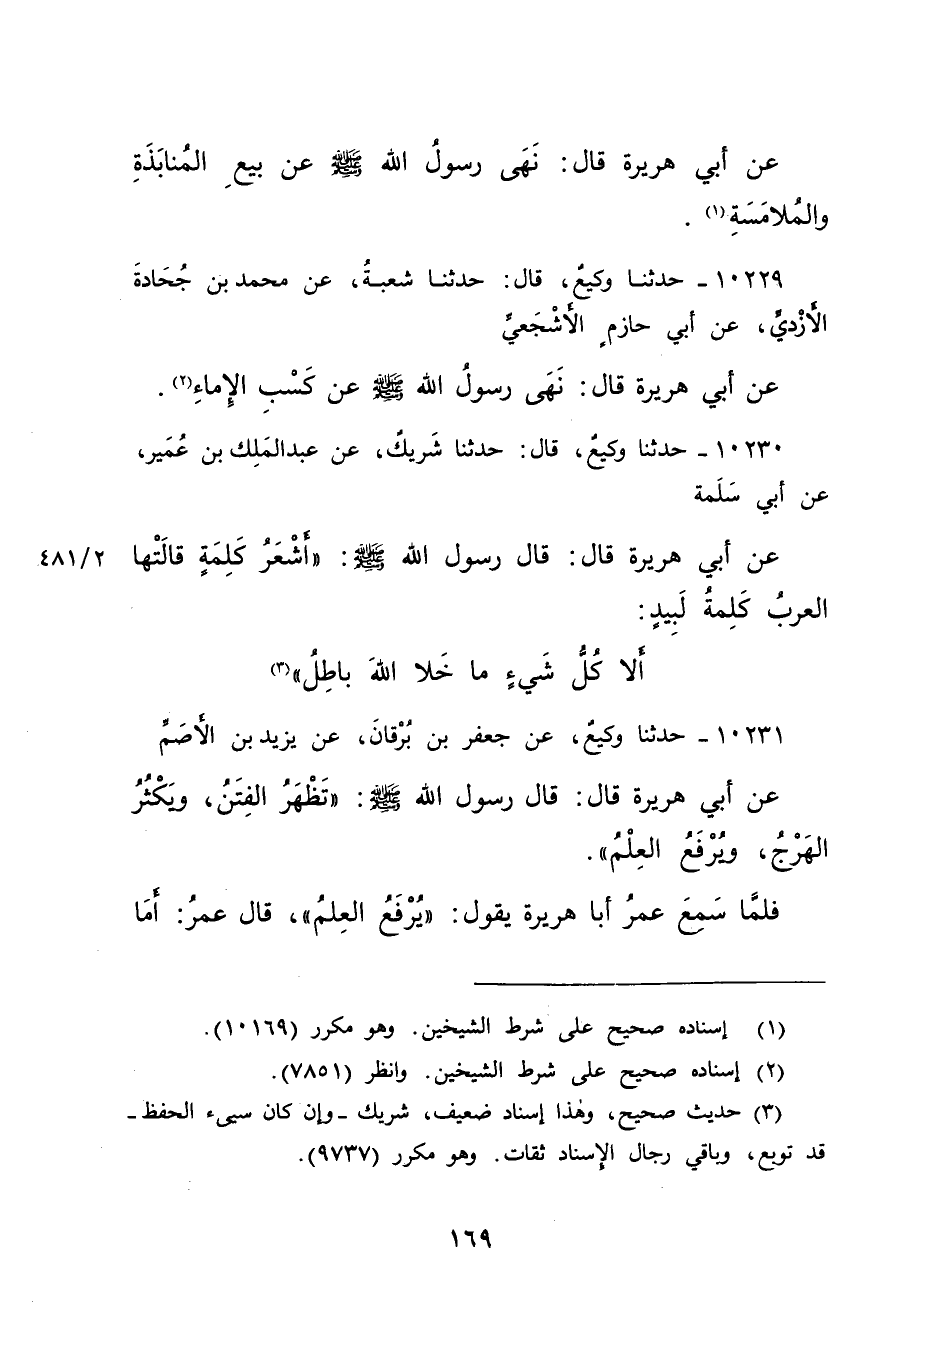 عن أبي هريرة قال: نَهَى رسولُ الله ﷺ عن بيعِ المُنابَذَةِ
والمُلامَسَةِ(١) .
١٠٢٢٩ ـ حدثنا وكيعٌ، قال: حدثنا شعبةُ، عن محمد بن جُحَادةَ
الأَزْديِّ، عن أبي حازمٍ الأَشْجَعيِّ
عن أبي هريرة قال: نَهَى رسولُ الله ﷺ عن كَسْبِ الإِماءِ(٢) .
١٠٢٣٠ ـ حدثنا وكيعٌ، قال: حدثنا شَريكٌ، عن عبدالمَلِك بن عُمَير،
عن أبي سَلَمة
عن أبي هريرة قال: قال رسول الله ﷺ: «أَشْعَرُ كَلِمَةٍ قالَتْها ٤٨١/٢
العربُ كَلِمةُ لَبِيدٍ:
أَلا كُلُّ شَيءٍ ما خَلا اللهَ باطِلُ»(٣)
١٠٢٣١ ـ حدثنا وكيعٌ، عن جعفر بن بُرْقانَ، عن يزيد بن الأَصَمِّ
عن أبي هريرة قال: قال رسول الله ﷺ: «تَظْهَرُ الفِتَنُ، ويَكْثُرُ
الهَرْجُ، ويُرْفَعُ العِلْمُ».
فلمَّا سَمِعَ عمرُ أبا هريرة يقول: «يُرْفَعُ العلمُ»، قال عمرُ: أَمَا
(١) إسناده صحيح على شرط الشيخين. وهو مكرر (١٠١٦٩).
(٢) إسناده صحيح على شرط الشيخين. وانظر (٧٨٥١).
(٣) حديث صحيح، وهٰذا إسناد ضعيف، شريك ـ وإن كان سيىء الحفظ ـ
قد توبع، وباقي رجال الإسناد ثقات. وهو مكرر (٩٧٣٧).
١٦٩